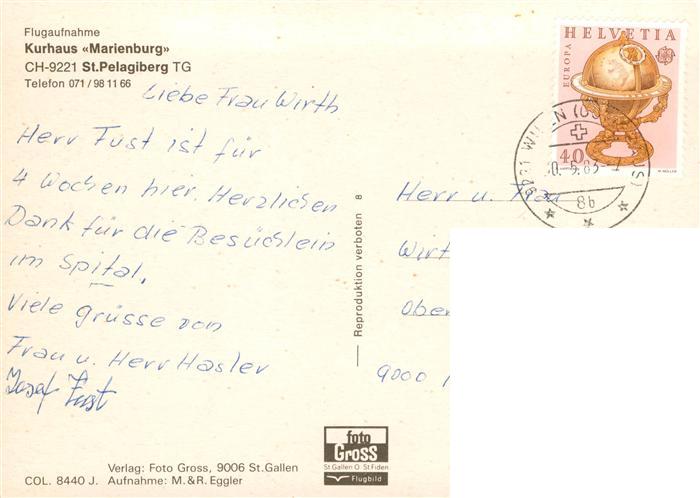 Flugaufnahme
Kurhaus «Marienburg»
CH-9221 St.Pelagiberg TG
Telefon 071 / 98 11 66
Liebe Frau Wirth
Herr Fust ist für
4 Wochen hier. Herzlichen
Dank für die Besüchlein
im Spital.
Viele grüsse von
Frau u. Herr Hasler
Josef Fust
COL. 8440 J.
Verlag: Foto Gross, 9006 St.Gallen
Aufnahme: M.&R. Eggler
Reproduktion verboten 8
foto
Gross
St Gallen O St Fiden
Flugbild
HELVETIA
EUROPA
40
M. MÜLLER
8b
Herr u. Frau
Wirt
Ober
9000